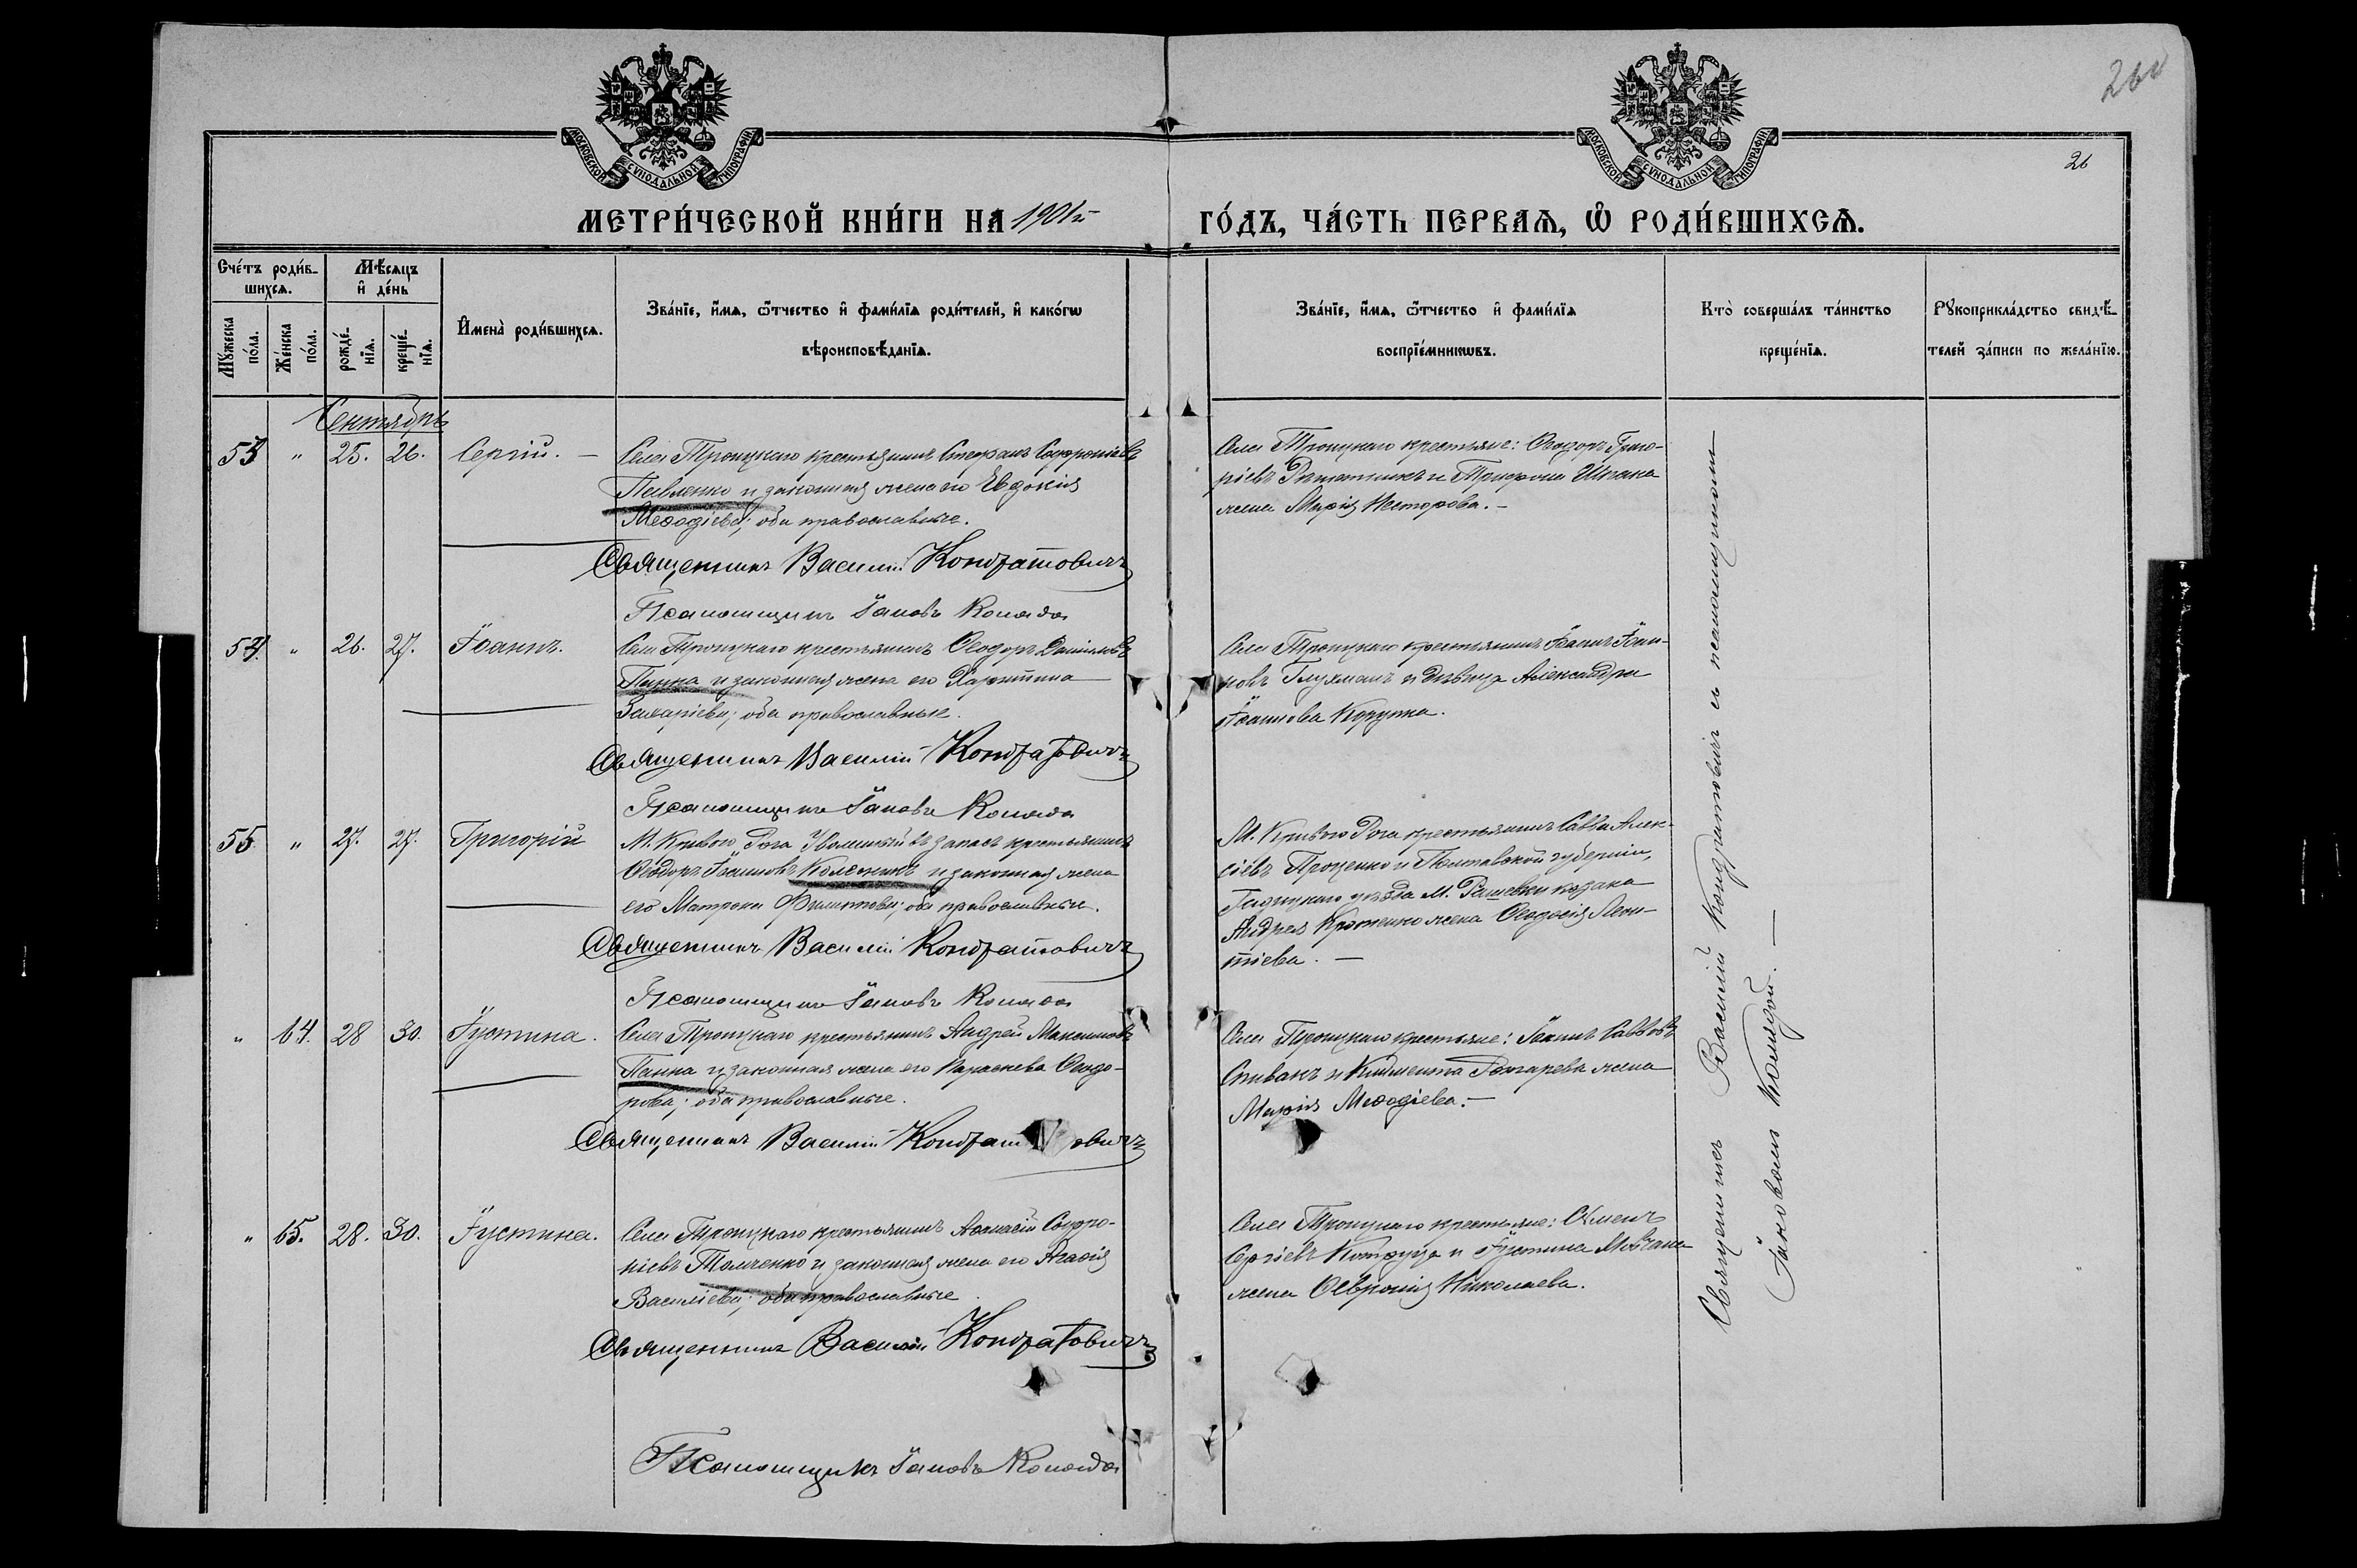 260
26
МОСКОВСКОЙ СѴНОДАЛЬНОЙ ТИПОГРАФІИ
МОСКОВСКОЙ СѴНОДАЛЬНОЙ ТИПОГРАФІИ
МЕТРИ́ЧЕСКОЙ КНИ́ГИ НА 1901й
ГО́ДЪ, ЧА́СТЬ ПЕРВАѦ, Ѡ҆ РОДИ́ВШИХСѦ.
Сче́тъ роди́в-
шихсѧ.
Мѣ́сѧцъ
и҆ де́нь
Мꙋ́жеска
по́ла.
Же́нска
по́ла.
рожде́-
нїѧ.
креще́-
нїѧ.
И҆мена̀ роди́вшихсѧ.
Зва́нїе, и҆́мѧ, ѻ҆́тчество и҆ фами́лїѧ роди́телей, и҆ како́гѡ
вѣроисповѣ́данїѧ.
Зва́нїе, и҆́мѧ, ѻ҆́тчество и҆ фами́лїѧ
воспрїе́мникѡвъ.
Кто̀ соверша́лъ та́инство
креще́нїѧ.
Рꙋкоприкла́дство свидѣ́-
телей за́писи по жела́нїю.
Сентябрь
53 " 25. 26. Сергій. — Села Троицкаго крестьянинъ Стефанъ Софроніевъ
Павленко и законная жена его Евдокія
Меѳодіева; оба православные.
Священникъ Василій Кондратовичъ
Псаломщикъ Іаковъ Коляда
Села Троицкаго крестьяне: Ѳеодоръ Григо-
ріевъ Рѣшетникъ и Трифона
жена Марія Несторова. —
54. " 26. 27. Іоаннъ. Села Троицкаго крестьянинъ Ѳеодоръ Даніиловъ
Панна и законная жена его Харитина
Захаріева; оба православные.
Священникъ Василій Кондратовичъ
Псаломщикъ Іаковъ Коляда
Села Троицкаго крестьянинъ Іоаннъ Іоан-
новъ Глухманъ и дѣвица Александра
Іоаннова
55 " 27. 27. Григорій М. Кривого Рога Уволенный въ запасъ крестьянинъ
Ѳеодоръ Іоанновъ Колесникъ и законная жена
его Матрона Филиппова; оба православные.
Священникъ Василій Кондратовичъ
Псаломщикъ Іаковъ Коляда
М. Кривого Рога крестьянинъ Савва Алек-
сіевъ Проценко и Полтавской губерніи,
Гадяцкаго уѣзда М. Рашевки козака
Андрея жена Ѳеодосія Леон-
тіева. —
" 64. 28 30. Іустина. Села Троицкаго крестьянинъ Андрей Максимовъ
Панна и законная жена его Параскева Ѳеодо-
рова; оба православные.
Священникъ Василій Кондратовичъ
Села Троицкаго крестьяне: Іоаннъ Саввовъ
Спивакъ и Климента Гончарева жена
Марія Меѳодіева. —
" 65. 28. 30. Іустина. Села Троицкаго крестьянинъ Аѳанасій Софро-
ніевъ Толченко и законная жена его Агаѳія
Василіева; оба православные.
Священникъ Василій Кондратовичъ
Псаломщикъ Іаковъ Коляда
Села Троицкаго крестьяне: Сѵмеонъ
Сергіевъ и Іустина Мовчана
жена Ѳевронія Николаева.
Священникъ Василій Кондратовичъ съ псаломщикомъ
Іаковомъ Колядой. —